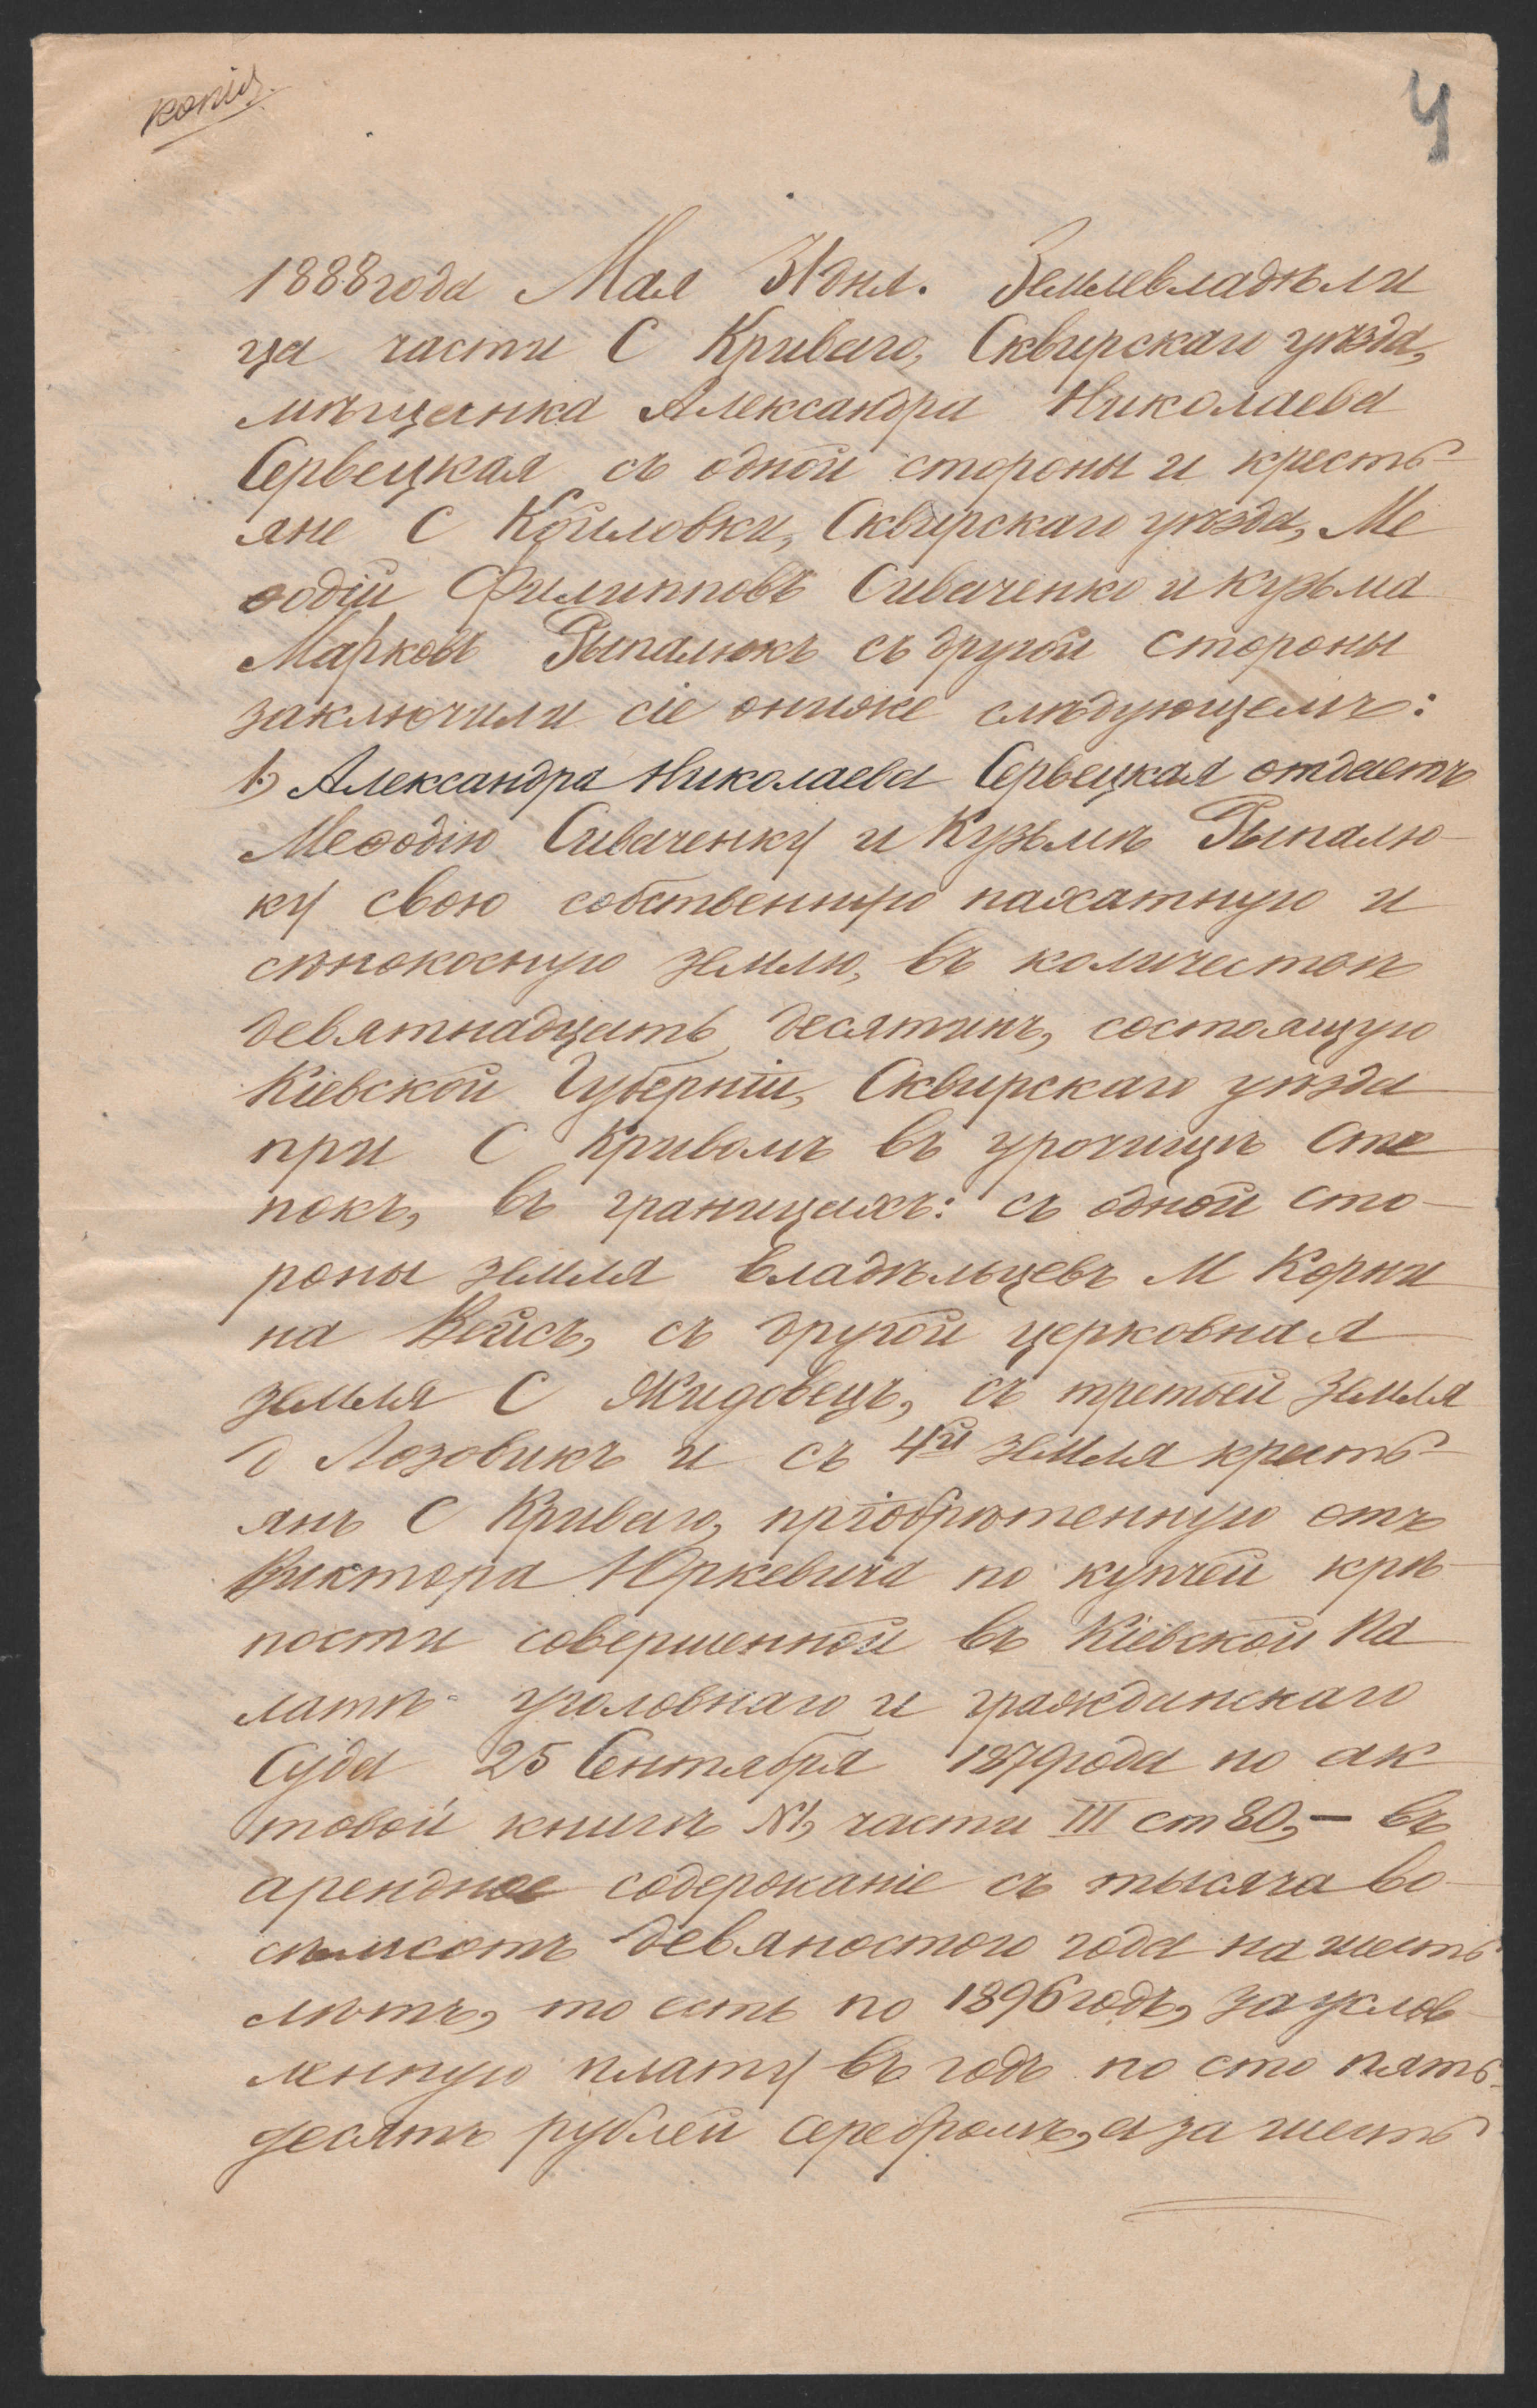 копія.
4
1888 года Мая 31 дня. Землевладѣли
ца части С Криваго, Сквирскаго уѣзда,
мѣщанка Александра Николаева
Сервецкая съ одной стороны и кресть-
яне С Койловки, Сквирскаго уѣзда, Ме
ѳодій Филипповъ Сиваченко и Кузьма
Марковъ Рыпалюкъ съ другой стороны
заключили сіе ониже слѣдующемъ:
1) Александра Николаева Сервецкая отдаетъ
Меѳодію Сиваченку и Кузьмѣ Рыпалю-
ку свою собственную пахатную и
сѣнокосную землю, въ количествѣ
девятнадцать десятинъ, состоящую
Кіевской Губерніи, Сквирскаго уѣзда
при С Кривомъ въ урочищѣ Сте
покъ, въ границахъ: съ одной сто-
роны земля владѣльцевъ М Корни
на Вейсъ, съ другой церковная
земля С Жидовецъ, съ третьей земля
д Лозовикъ и съ 4й земля кресть-
янъ С Криваго, пріобрѣтенную отъ
Виктора Юркевича по купчей крѣ
пости совершенной въ Кіевской Па
латѣ уголовнаго и гражданскаго
Суда 25 Сентября 1879 года по ак
товой книгѣ №1, части III ст 80, - въ
арендное содержаніе съ тысяча во-
съмсотъ девяностого года на шесть
лѣтъ, то есть по 1896 годъ, за услов
ленную плату въ годъ по сто пять-
десятъ рублей серебромъ, а за шесть